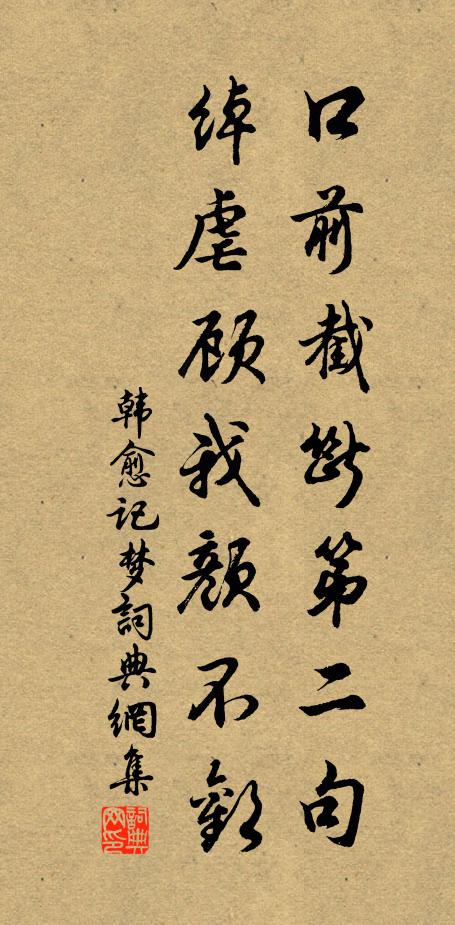 口前截断第二句
绰虐顾我颜不歡
韩愈记梦詞典網集
詞典網印